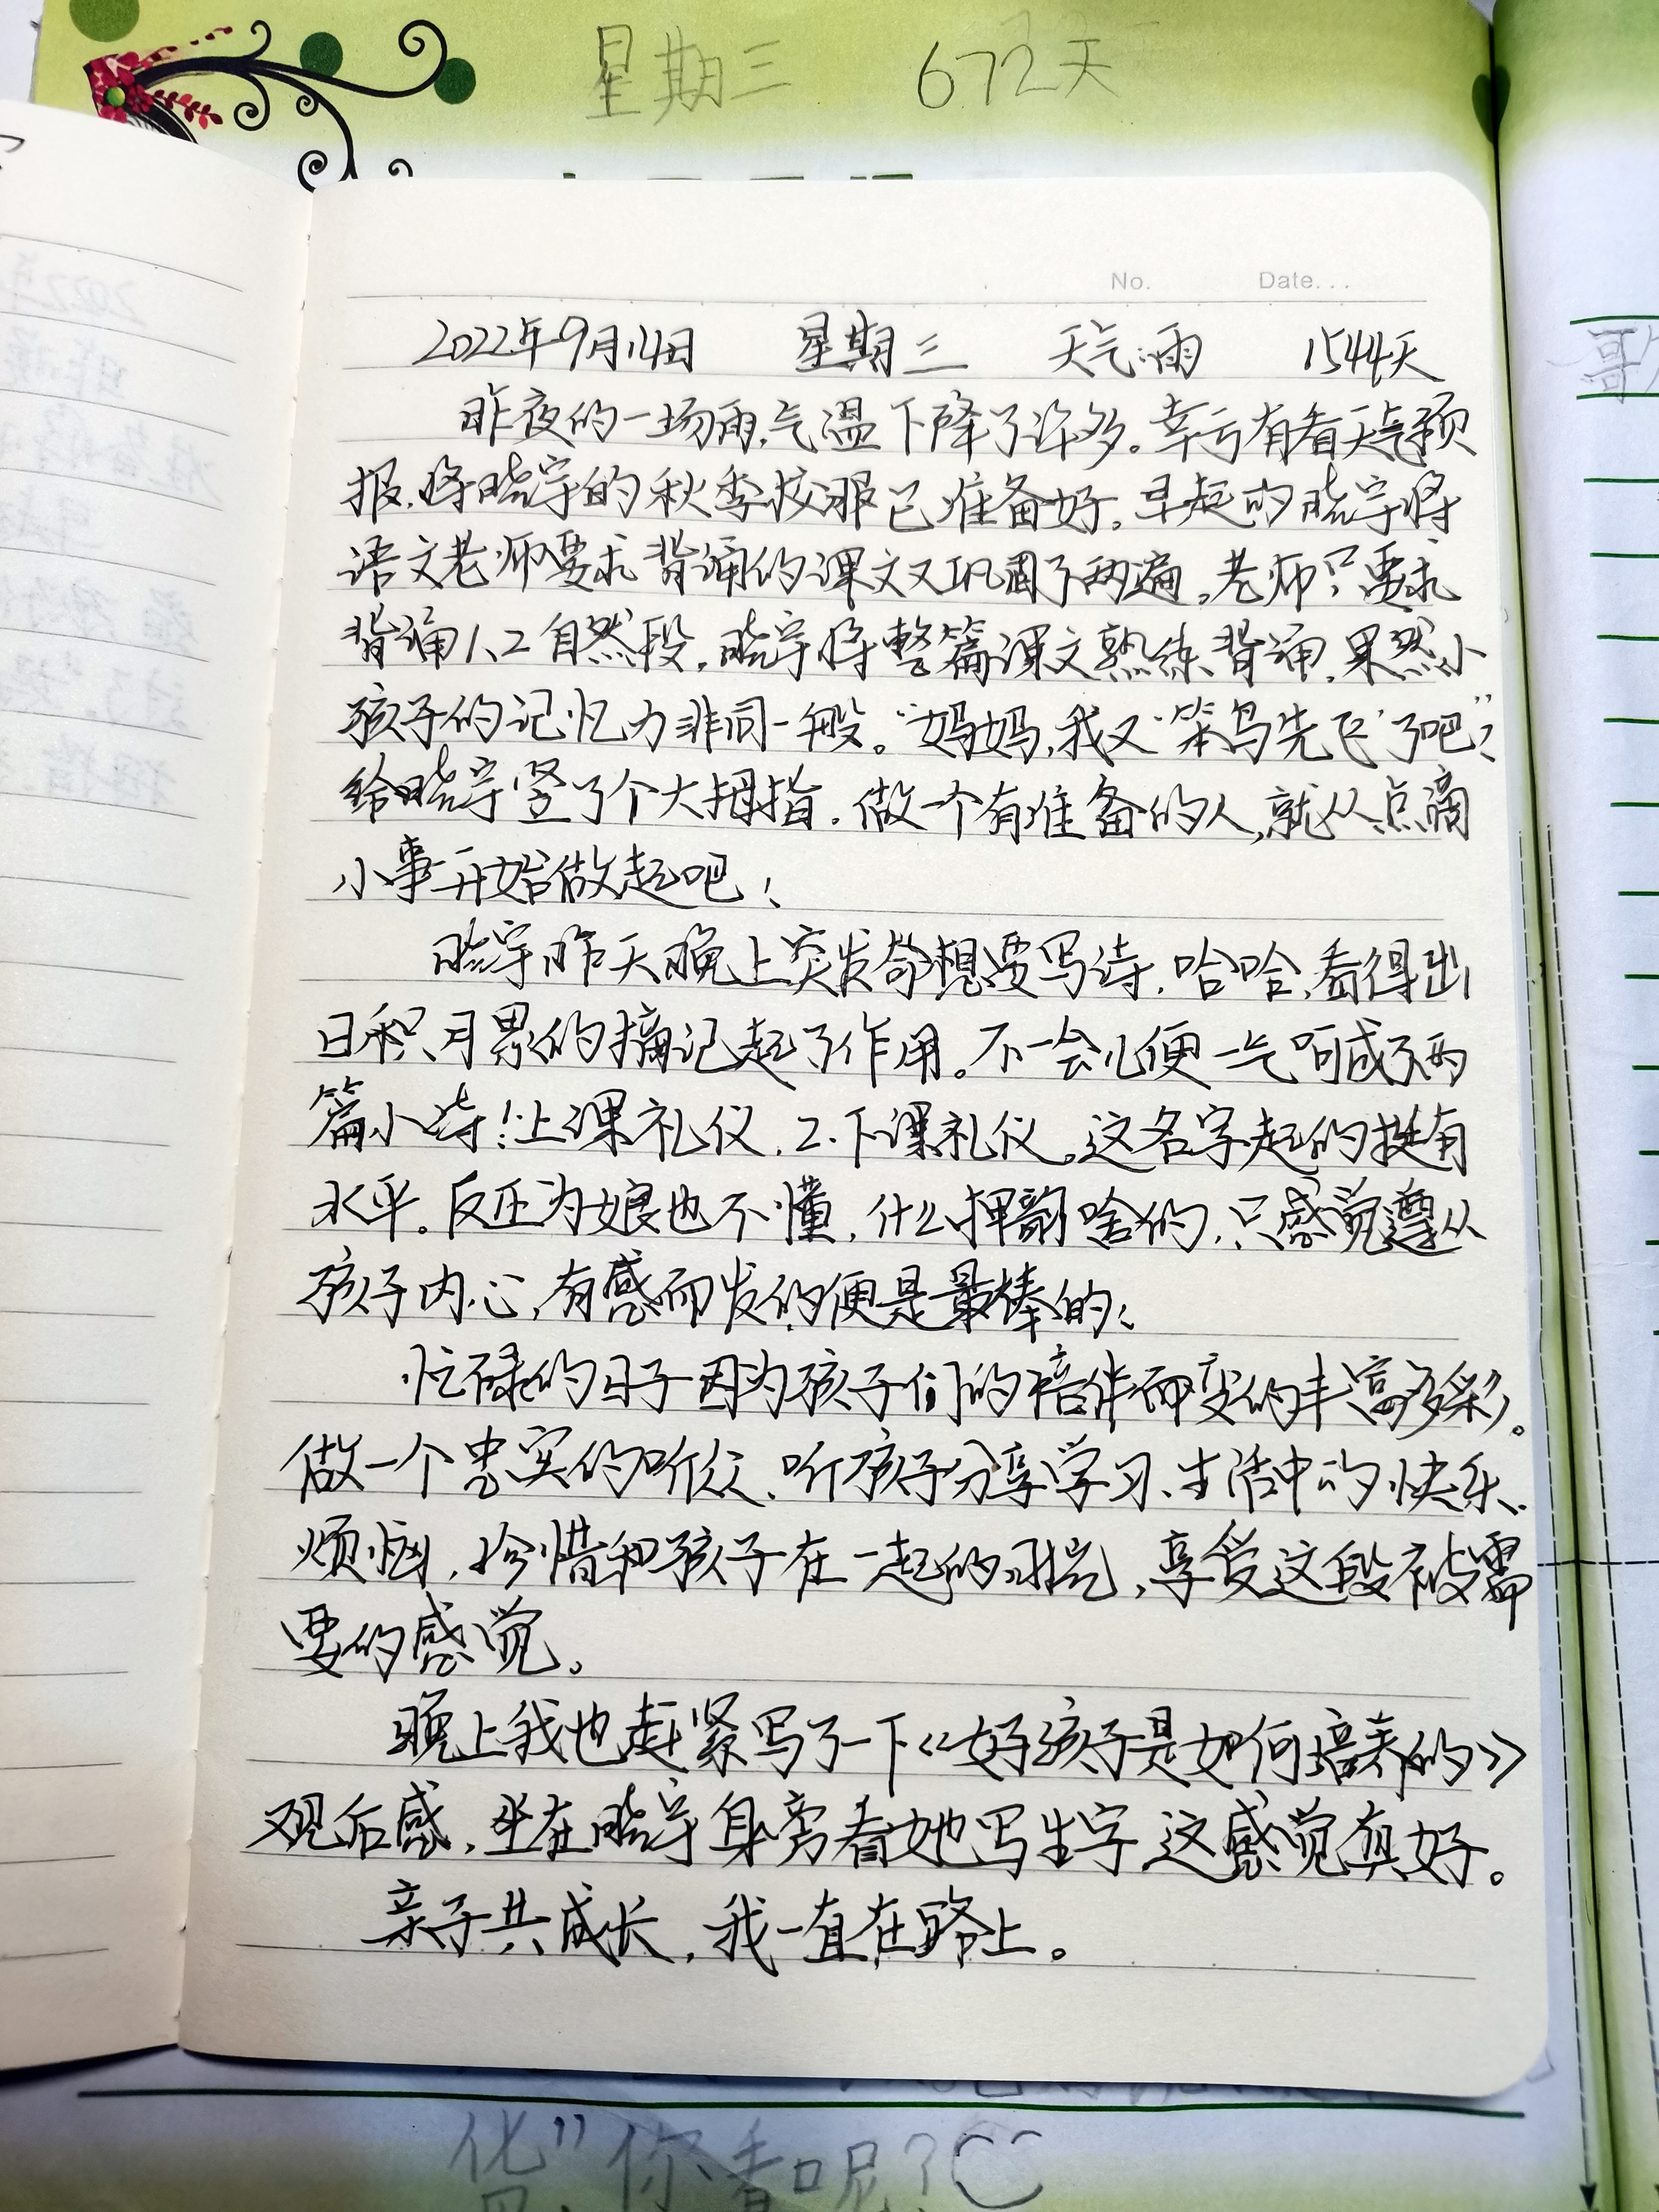 星期三 672天
No. Date...
2022年9月14日 星期三 天气:雨 1544天
昨夜的一场雨,气温下降了许多。幸亏有看天气预
报,将晓宇的秋季校服已准备好。早起的晓宇将
语文老师要求背诵的课文又巩固了两遍。老师只要求
背诵1、2自然段,晓宇将整篇课文熟练背诵,果然小
孩子的记忆力非同一般。“妈妈,我又‘笨鸟先飞’了吧”?
给晓宇竖了个大拇指。做一个有准备的人,就从点滴
小事开始做起吧!
晓宇昨天晚上突发奇想要写诗,哈哈,看得出
日积月累的摘记起了作用。不一会儿便一气呵成了两
篇小诗:1.上课礼仪,2.下课礼仪。这名字起的挺有
水平。反正为娘也不懂,什么押韵啥的,只感觉遵从
孩子内心,有感而发的便是最棒的!
忙碌的日子因为孩子们的陪伴而变的丰富多彩。
做一个忠实的听众,听孩子分享学习、生活中的快乐、
烦恼,珍惜和孩子在一起的时光,享受这段被需
要的感觉。
晚上我也赶紧写了一下《好孩子是如何培养的》
观后感,坐在晓宇身旁看她写生字,这感觉真好。
亲子共成长,我一直在路上。
你看呢?